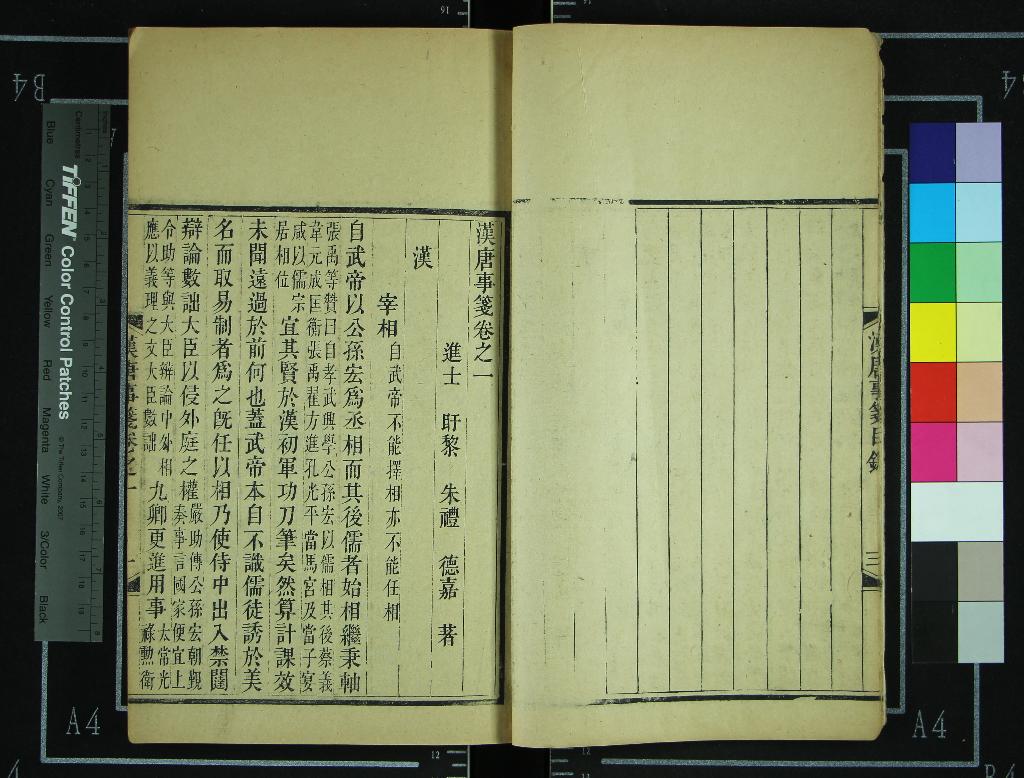 漢唐事箋目錄
三
漢唐事箋卷之一
進士 盱黎 朱禮 德嘉 著
漢
宰相 自武帝不能擇相亦不能任相
自武帝以公孫宏爲丞相而其後儒者始相繼秉軸
張禹等贊曰自孝武興學公孫宏以儒相其後蔡義
韋元成匡衡張禹翟方進孔光平當馬宮及當子晏
咸以儒宗
居相位
宜其賢於漢初軍功刀筆矣然算計課效
未聞遠過於前何也蓋武帝本自不識儒徒誘於美
名而取易制者爲之旣任以相乃使侍中出入禁闥
辯論數詘大臣以侵外庭之權
嚴助傳公孫宏朝覲
奏事言國家便宜上
令助等與大臣辯論中外相
應以義理之文大臣數詘
九卿更進用事
太常光
祿勲衛
漢唐事箋卷之一
一
B4
A4
A4
TIFFEN Color Control Patches
© The Tiffen Company, 2007
Centimetres
Inches
Blue
Cyan
Green
Yellow
Red
Magenta
White
3/Color
Black